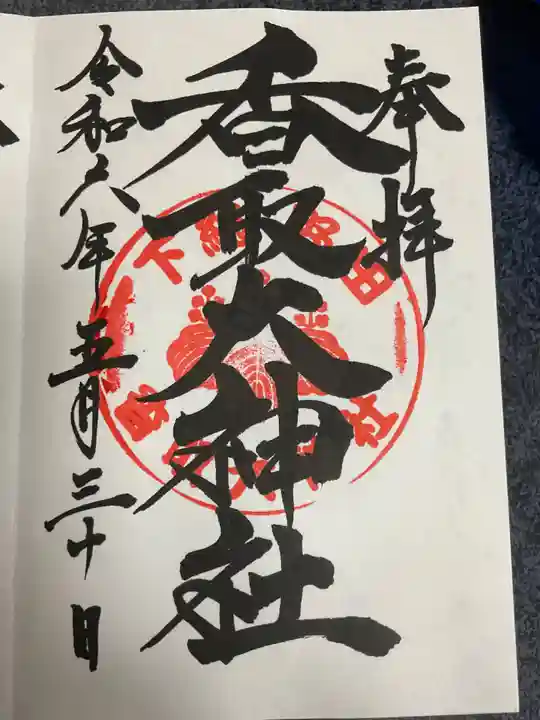 奉拝
香取大神社
令和六年五月三十日